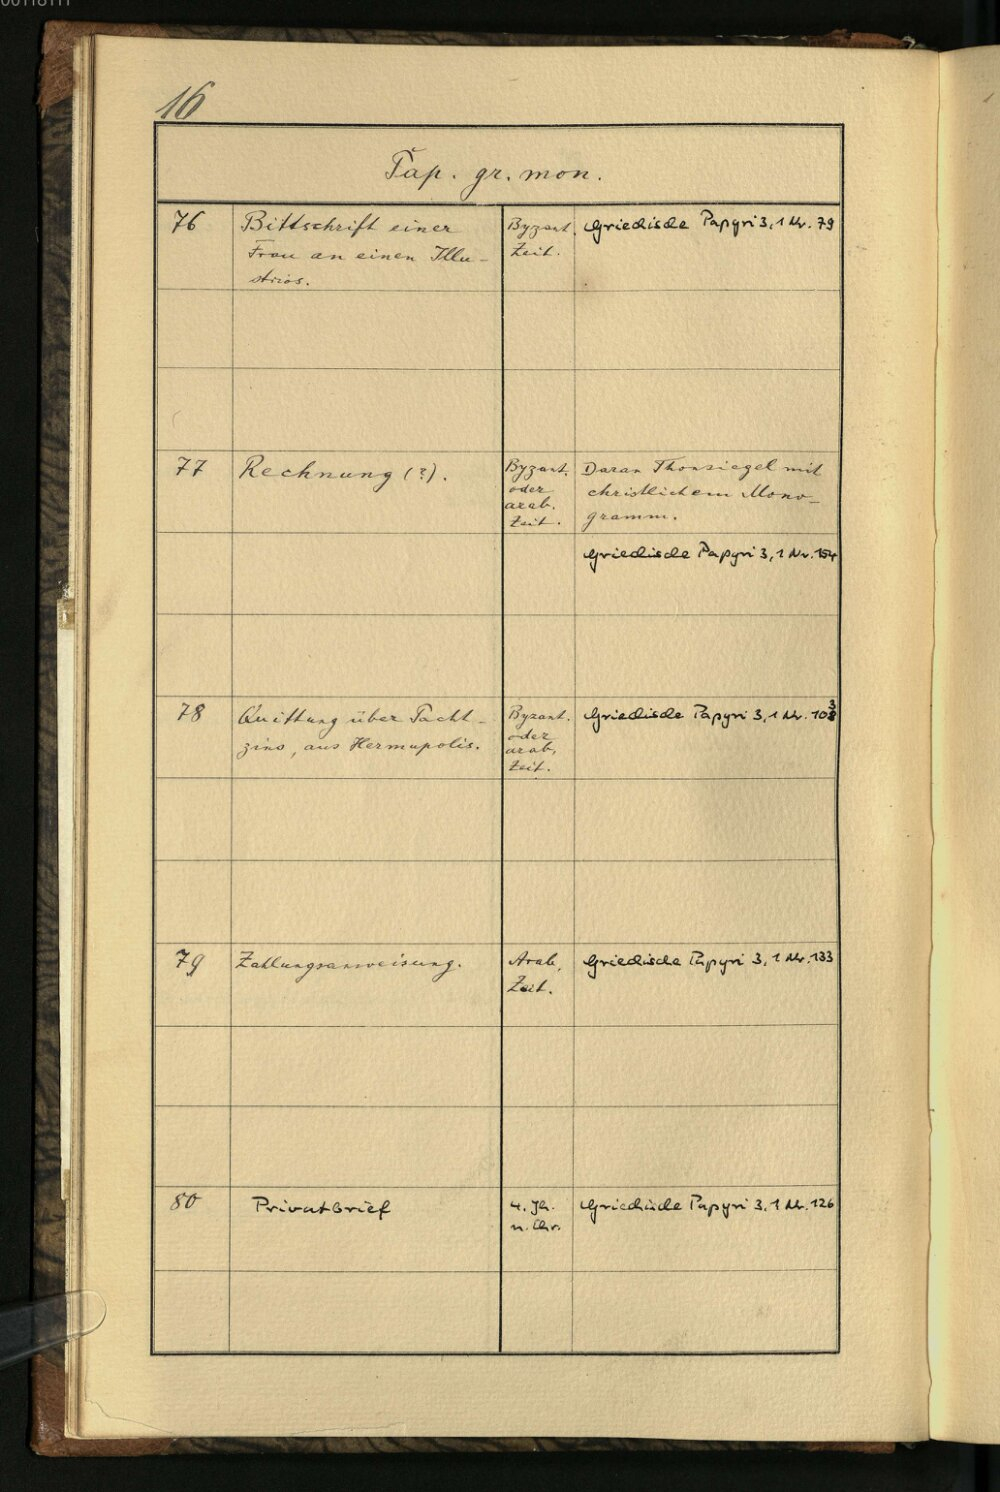 16
Pap. gr. mon.
76 Bittschrift einer Byzant. Griechische Papyri 3, 1 Nr. 79
Frau an einen Illu- Zeit.
strios.
77 Rechnung (?). Byzant. Daran Thonsiegel mit
oder christlichem Mono-
arab. gramm.
Zeit.
Griechische Papyri 3, 1 Nr. 154
78 Quittung über Pacht- Byzant. Griechische Papyri 3, 1 Nr. 103
zins, aus Hermupolis. oder
arab.
Zeit.
79 Zahlungsanweisung. Arab. Griechische Papyri 3, 1 Nr. 133
Zeit.
80 Privatbrief 4. Jh. Griechische Papyri 3, 1 Nr. 126
n. Chr.